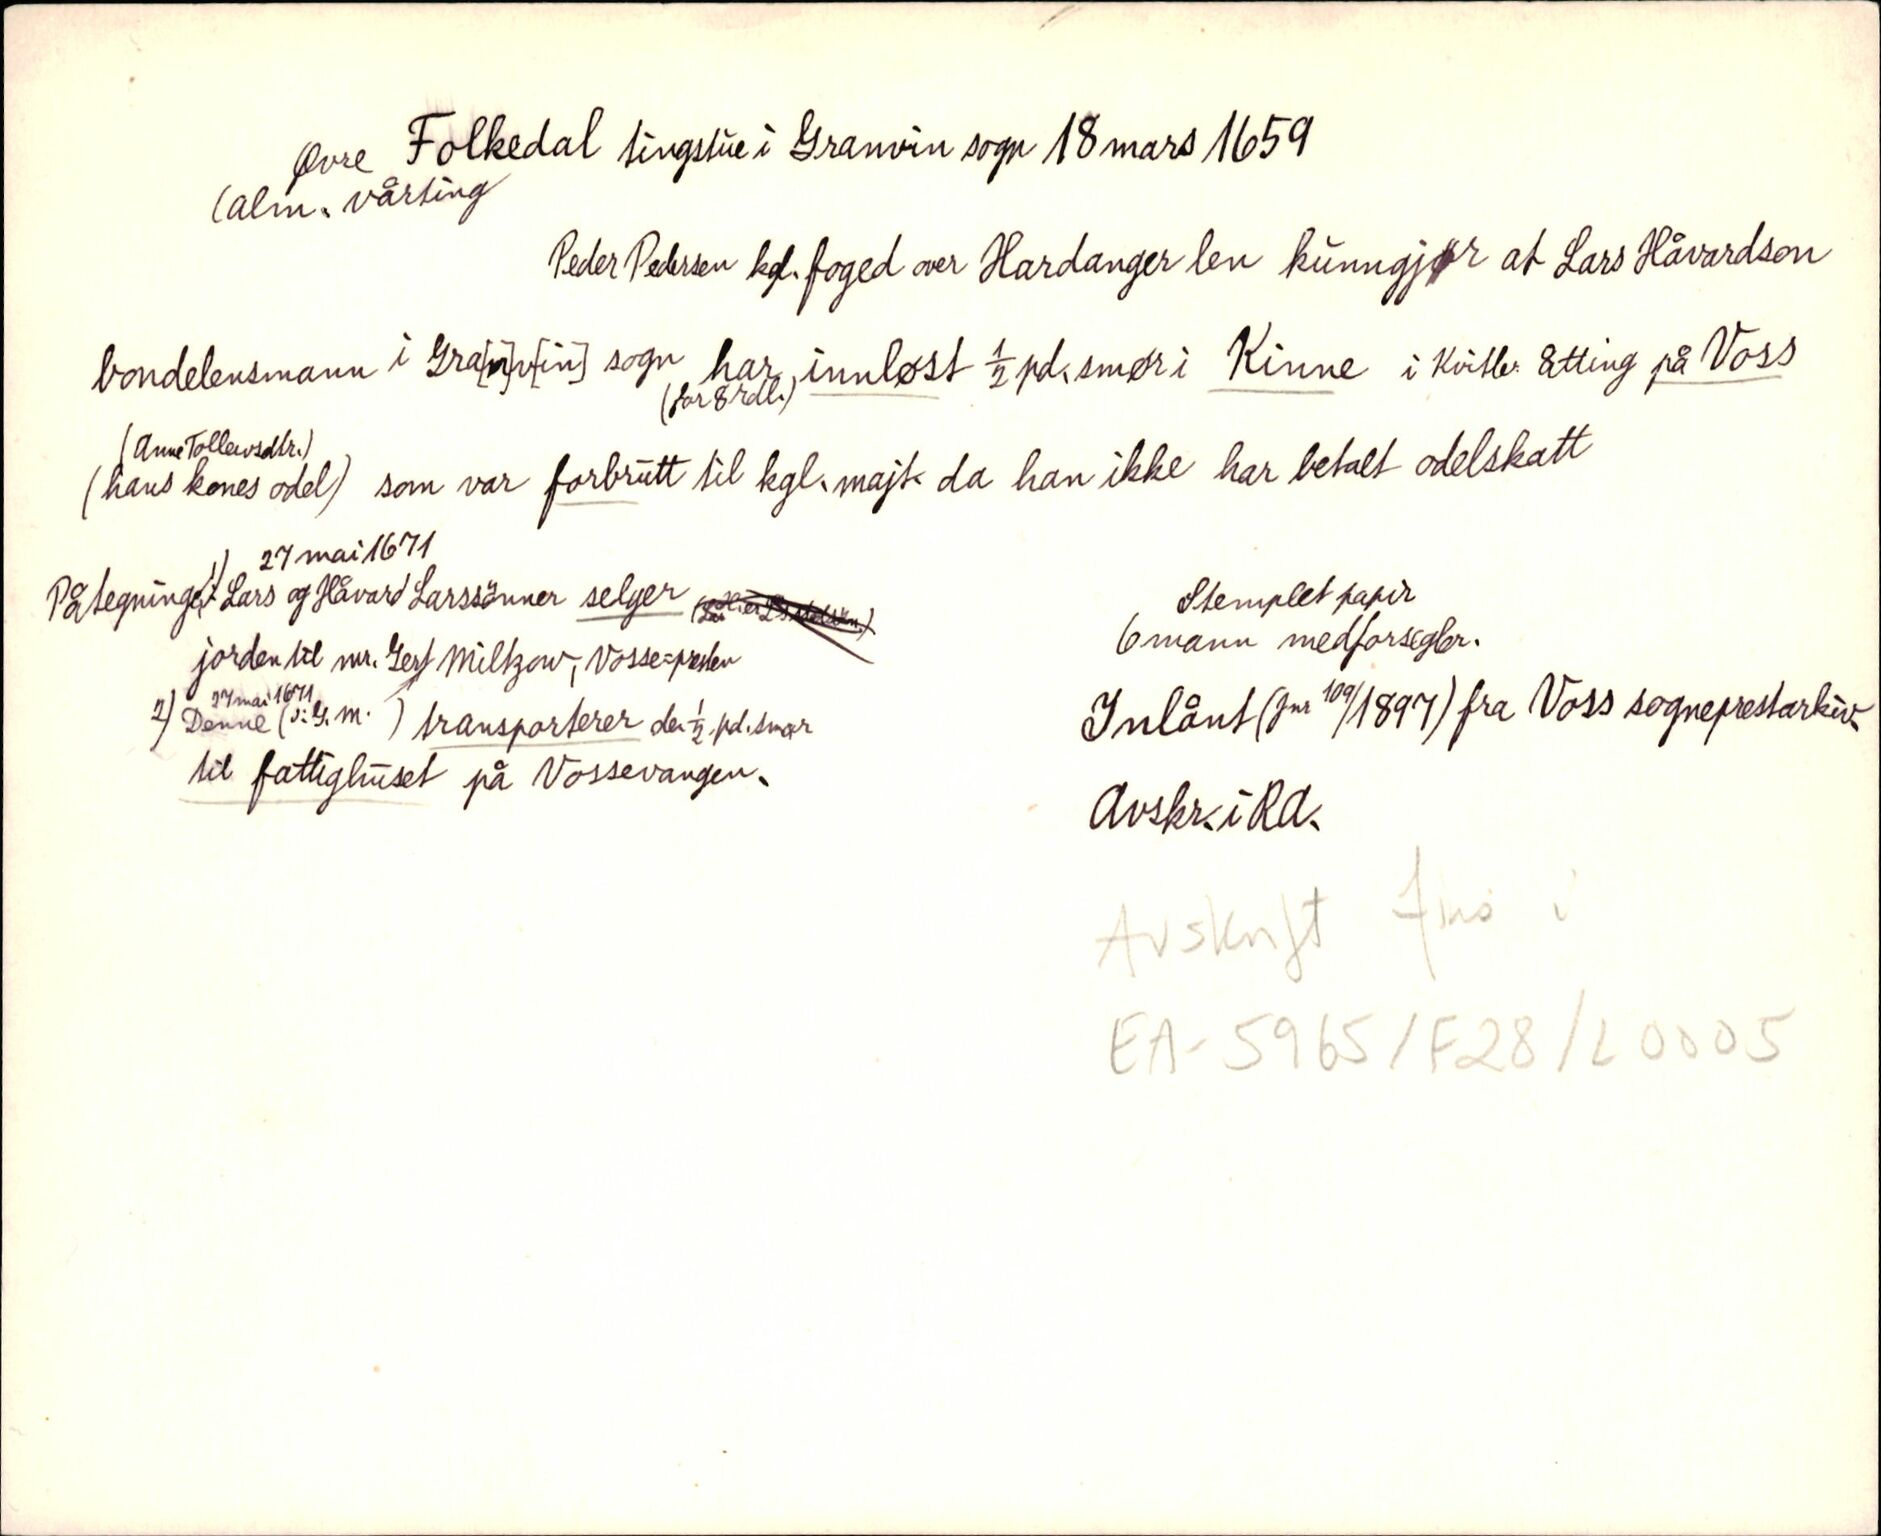 Øvre Folkedal tingstue i Granvin sogn 18 mars 1659
(alm. vårting
Peder Pedersen kgl. foged over Hardanger len kunngjør at Lars Håvardson
bondelensmann i Gra[n]v[in] sogn har innløst ½ pd. smør i Kinne i Kvitlr. åtting på Voss
(for 8 rdl.)
(Anne Tollevsdtr.)
(hans kones odel) som var forbrutt til kgl. majt. da han ikke har betalt odelskatt
27 mai 1671
Påtegninger 1) Lars og Håvard Larssönner selger
jorden til mr. Gert Miltzow, Vosse=presten
27 mai 1671
2) Denne (ɔ: G. M. ) transporterer de ½ pd. smør
til fattighuset på Vossevangen.
Stemplet papir
6 mann medforseglr.
Inlånt (Jnr 109/1897) fra Voss sogneprestarkiv.
Avskr. i RA.
Avskrift i
EA-5965/F28/L0005